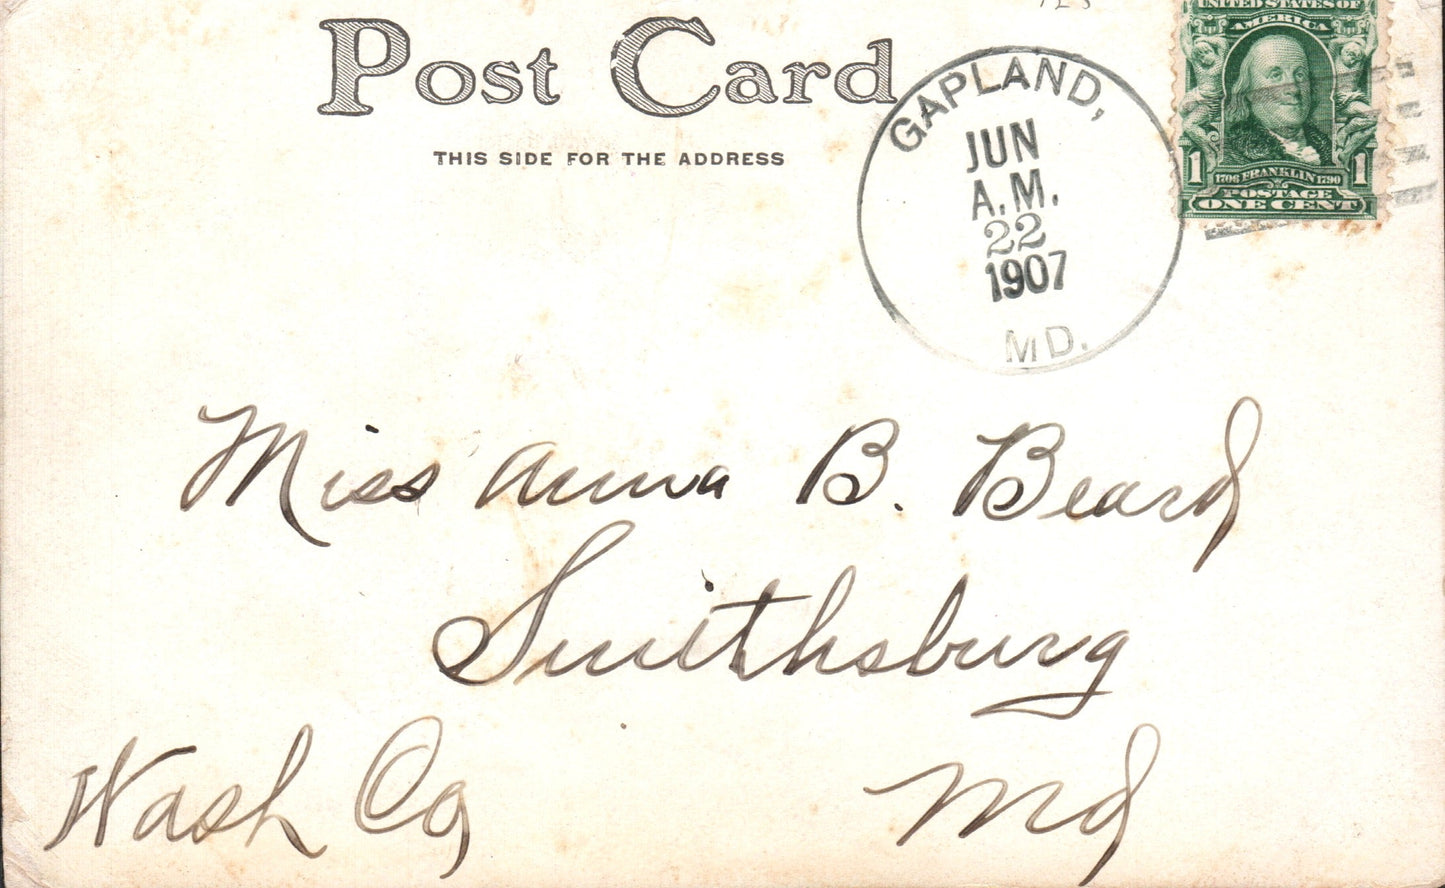 UNITED STATES OF
AMERICA
Post Card
THIS SIDE FOR THE ADDRESS
GAPLAND,
JUN
A.M.
22
1907
MD.
1 1706 FRANKLIN 1790 1
POSTAGE
ONE CENT
Miss Anna B. Beard
Smithsburg
Wash Co Md